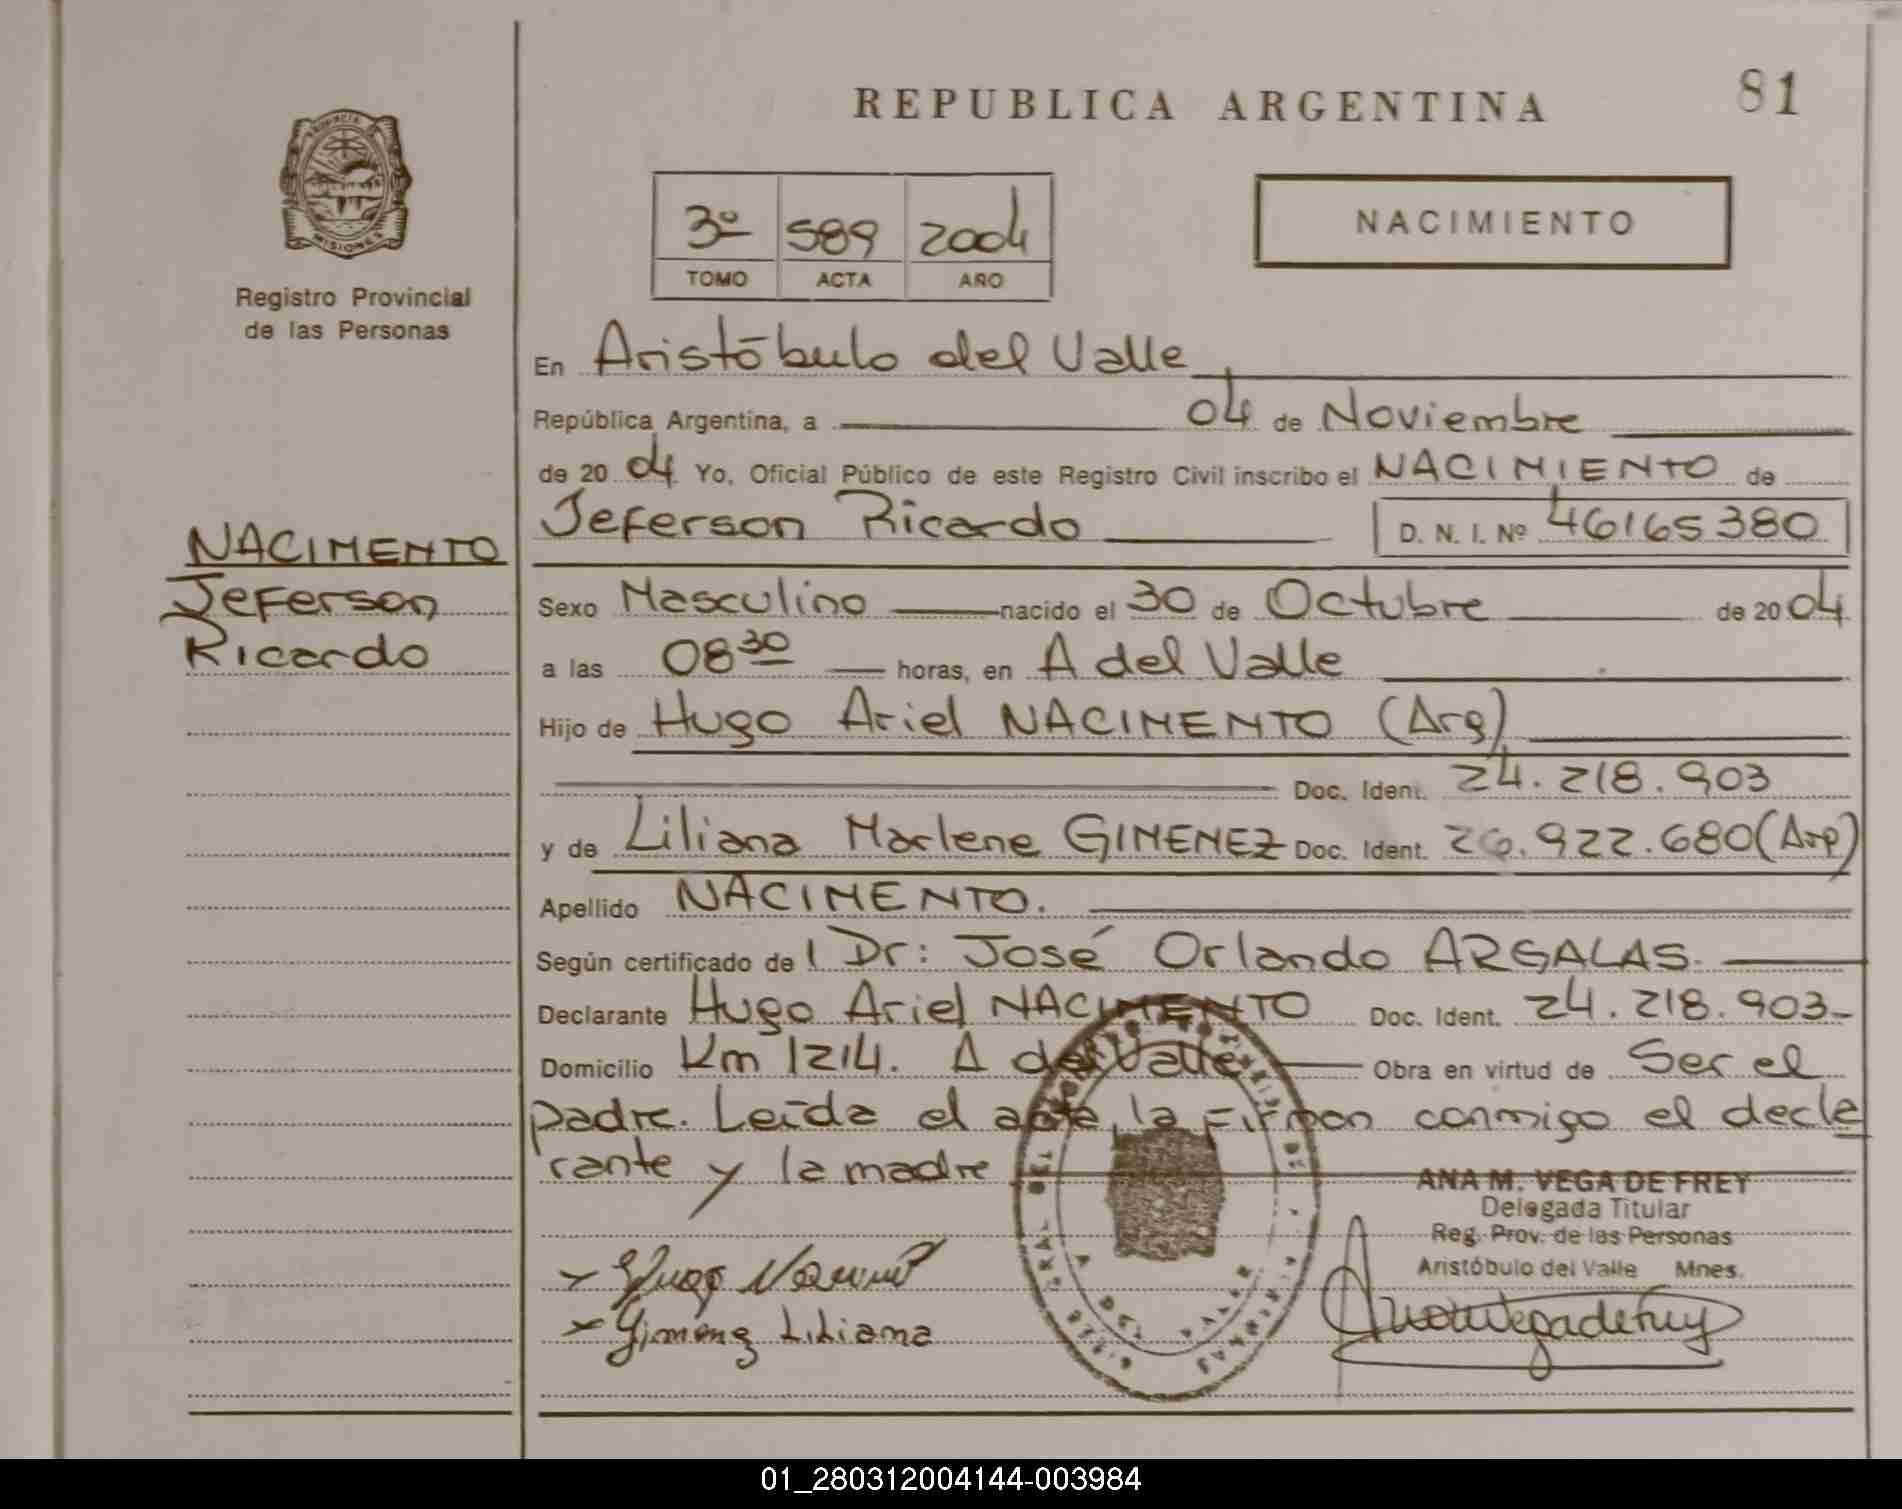 81
REPUBLICA ARGENTINA
PROVINCIA
MISIONES
Registro Provincial
de las Personas
3º 589 2004
TOMO ACTA AÑO
NACIMIENTO
En Aristóbulo del Valle
República Argentina, a 04 de Noviembre
de 20 04 Yo, Oficial Público de este Registro Civil inscribo el NACIMIENTO de
Jeferson Ricardo D. N. I. Nº 46165380
NACIMENTO
Jeferson
Ricardo
Sexo Masculino nacido el 30 de Octubre de 20 04
a las 08 30 horas, en A del Valle
Hijo de Hugo Ariel NACIMENTO (Arg)
Doc. Ident. 24.218.903
y de Liliana Marlene GIMENEZ Doc. Ident. 26.922.680 (Arg)
Apellido NACIMENTO.
Según certificado de l Dr: José Orlando ARGALAS.
Declarante Hugo Ariel NACIMENTO Doc. Ident. 24.218.903-
Domicilio Km 1214. A del Valle Obra en virtud de Ser el
padre. Leída el acta, la Firman conmigo el decla
rante y la madre
ANA M. VEGA DE FREY
Delegada Titular
Reg. Prov. de las Personas
Aristóbulo del Valle Mnes.
Hugo
Gimenez Liliana
A DEL VALLE
01_280312004144-003984